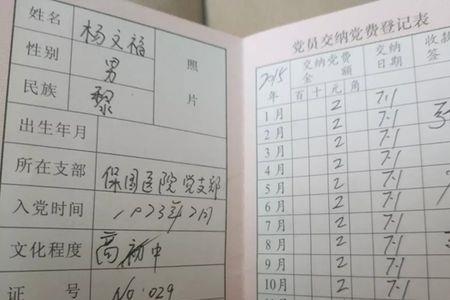 姓名 杨文福 照
性别 男
民族 黎 片
出生年月
所在支部 保国医院党支部
入党时间 1973年2月
文化程度 高初中
证 号 No:029
党员交纳党费登记表
2015年 交纳党费金额 交纳日期 收款签
百 十 元 角
1月 2 7.1
2月 2 7.1
3月 2 7.1
4月 2 7.1
5月 2 7.1
6月 2 7.1
7月 2 7.1
8月 2 7.1
9月 2 7.1
10月 2 7.1